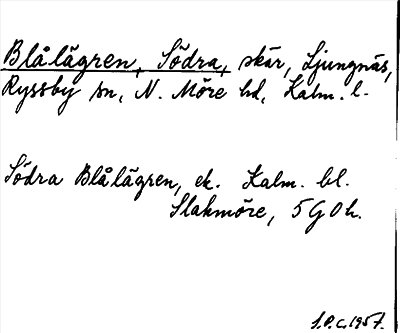 Blålägren, Södra, skär, Ljungnäs,
Ryssby sn, N. Möre hd, Kalm. l.
Södra Blålägren, ek. Kalm. bl.
Slakmöre, 5 G 0 h.
S.P.C. 1957.